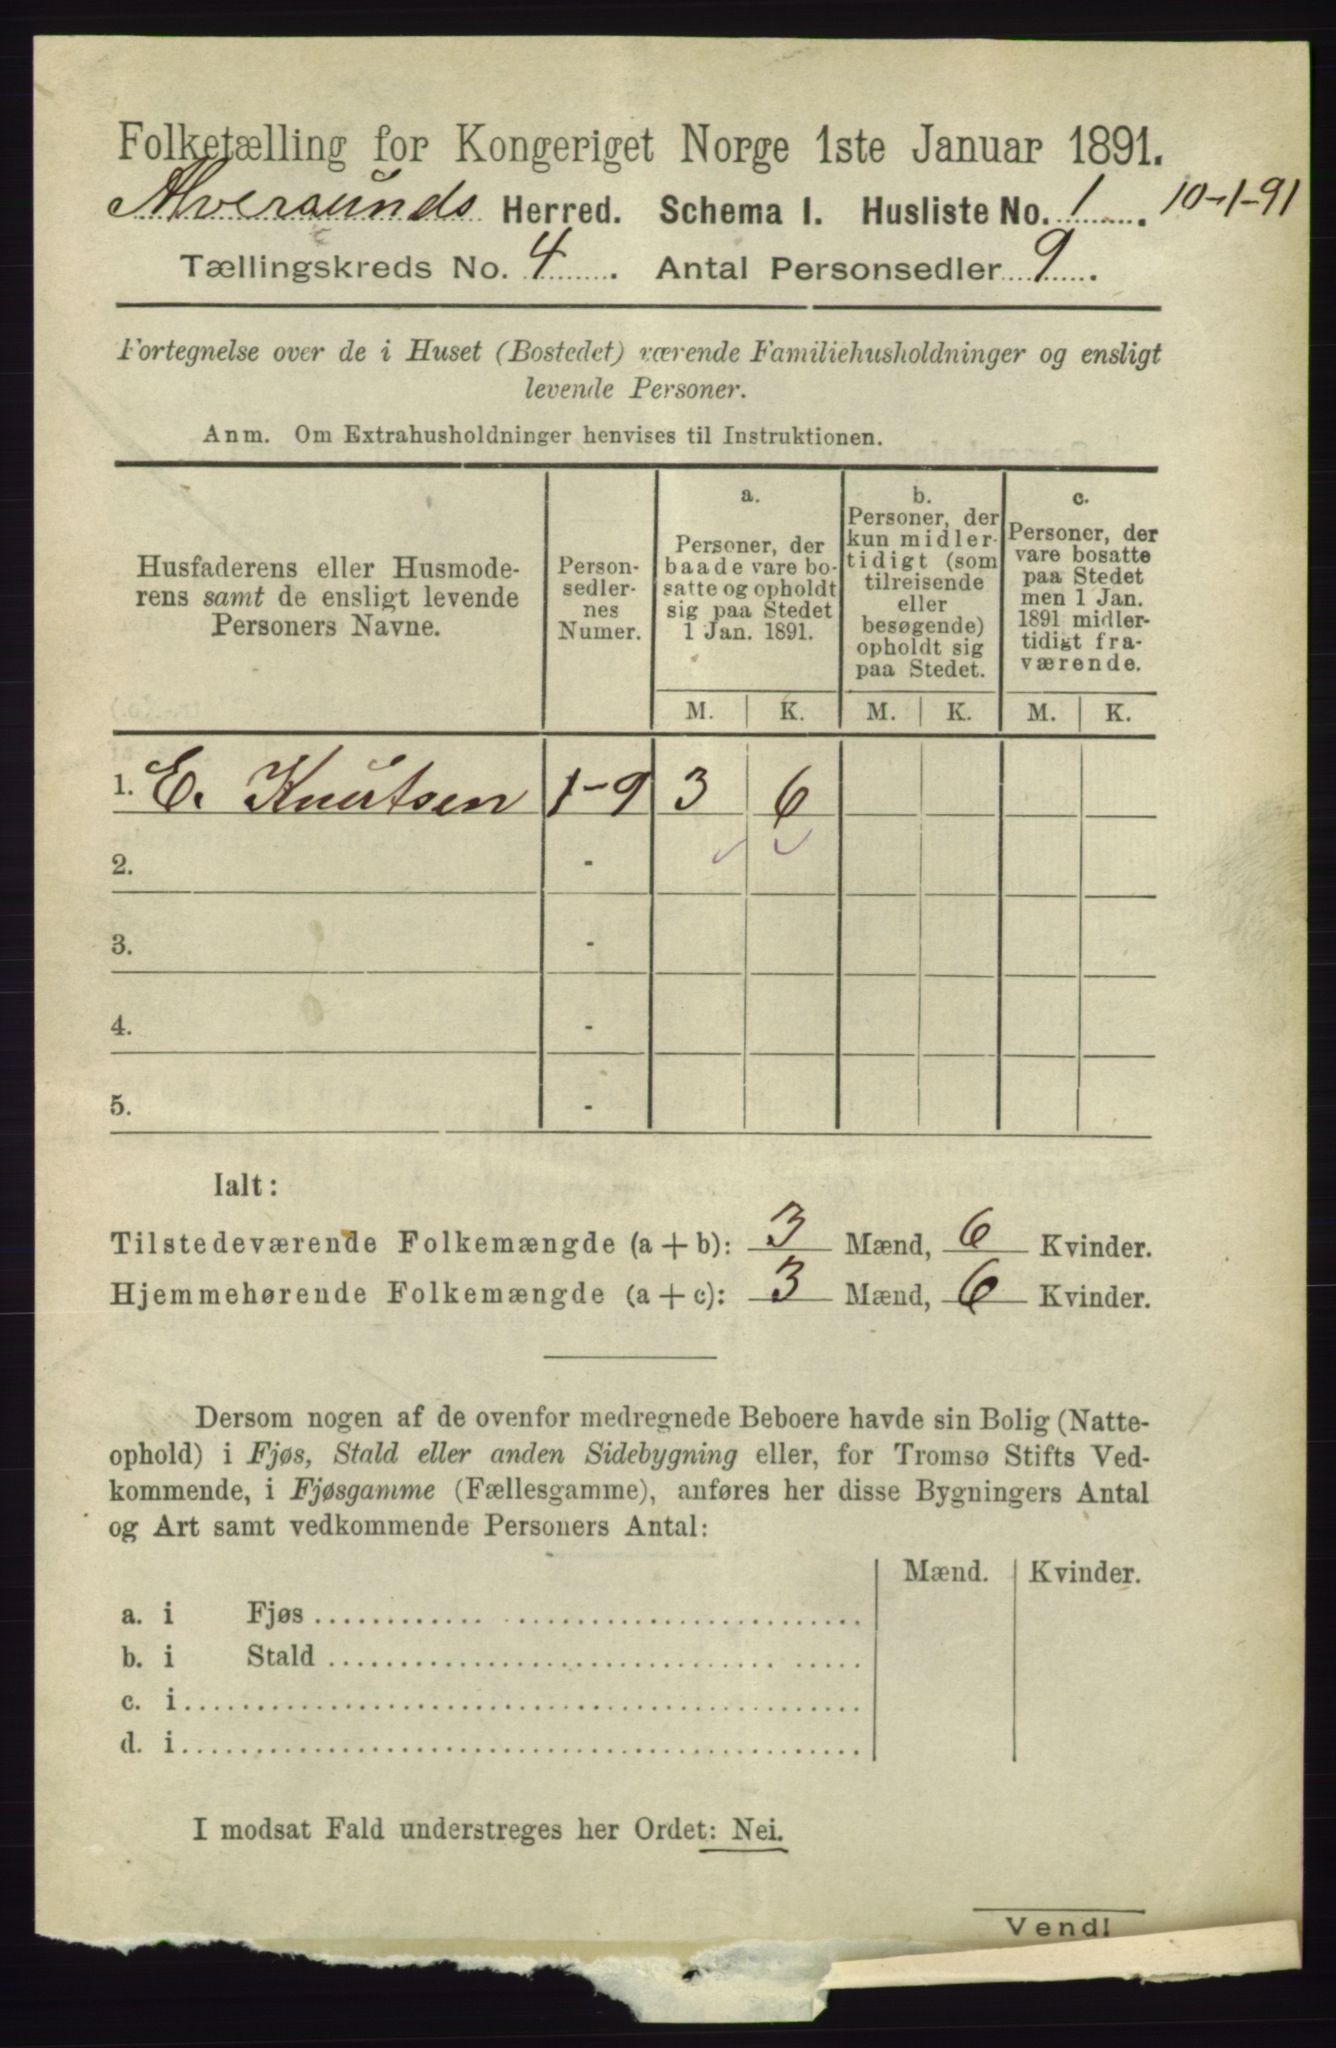 Folketælling for Kongeriget Norge 1ste Januar 1891.
Alversunds Herred. Schema I. Husliste No. 1. 10-1-91
Tællingskreds No. 4. Antal Personsedler 9.
Fortegnelse over de i Huset (Bostedet) værende Familiehusholdninger og ensligt
levende Personer.
Anm. Om Extrahusholdninger henvises til Instruktionen.
Husfaderens eller Husmode-
rens samt de ensligt levende
Personers Navne.
Person-
sedler-
nes
Numer.
a.
Personer, der
baade vare bo-
satte og opholdt
sig paa Stedet
1 Jan. 1891.
b.
Personer, der
kun midler-
tidigt (som
tilreisende
eller
besøgende)
opholdt sig
paa Stedet.
c.
Personer, der
vare bosatte
paa Stedet
men 1 Jan.
1891 midler-
tidigt fra-
værende.
M. K. M. K. M. K.
1. E. Knutsen 1-9 3 6
2. -
3. -
4. -
5. -
Ialt:
Tilstedeværende Folkemængde (a+b): 3 Mænd, 6 Kvinder.
Hjemmehørende Folkemængde (a+c): 3 Mænd, 6 Kvinder.
Dersom nogen af de ovenfor medregnede Beboere havde sin Bolig (Natte-
ophold) i Fjøs, Stald eller anden Sidebygning eller, for Tromsø Stifts Ved-
kommende, i Fjøsgamme (Fællesgamme), anføres her disse Bygningers Antal
og Art samt vedkommende Personers Antal:
Mænd. Kvinder.
a. i Fjøs
b. i Stald
c. i
d. i
I modsat Fald understreges her Ordet: Nei.
Vend!